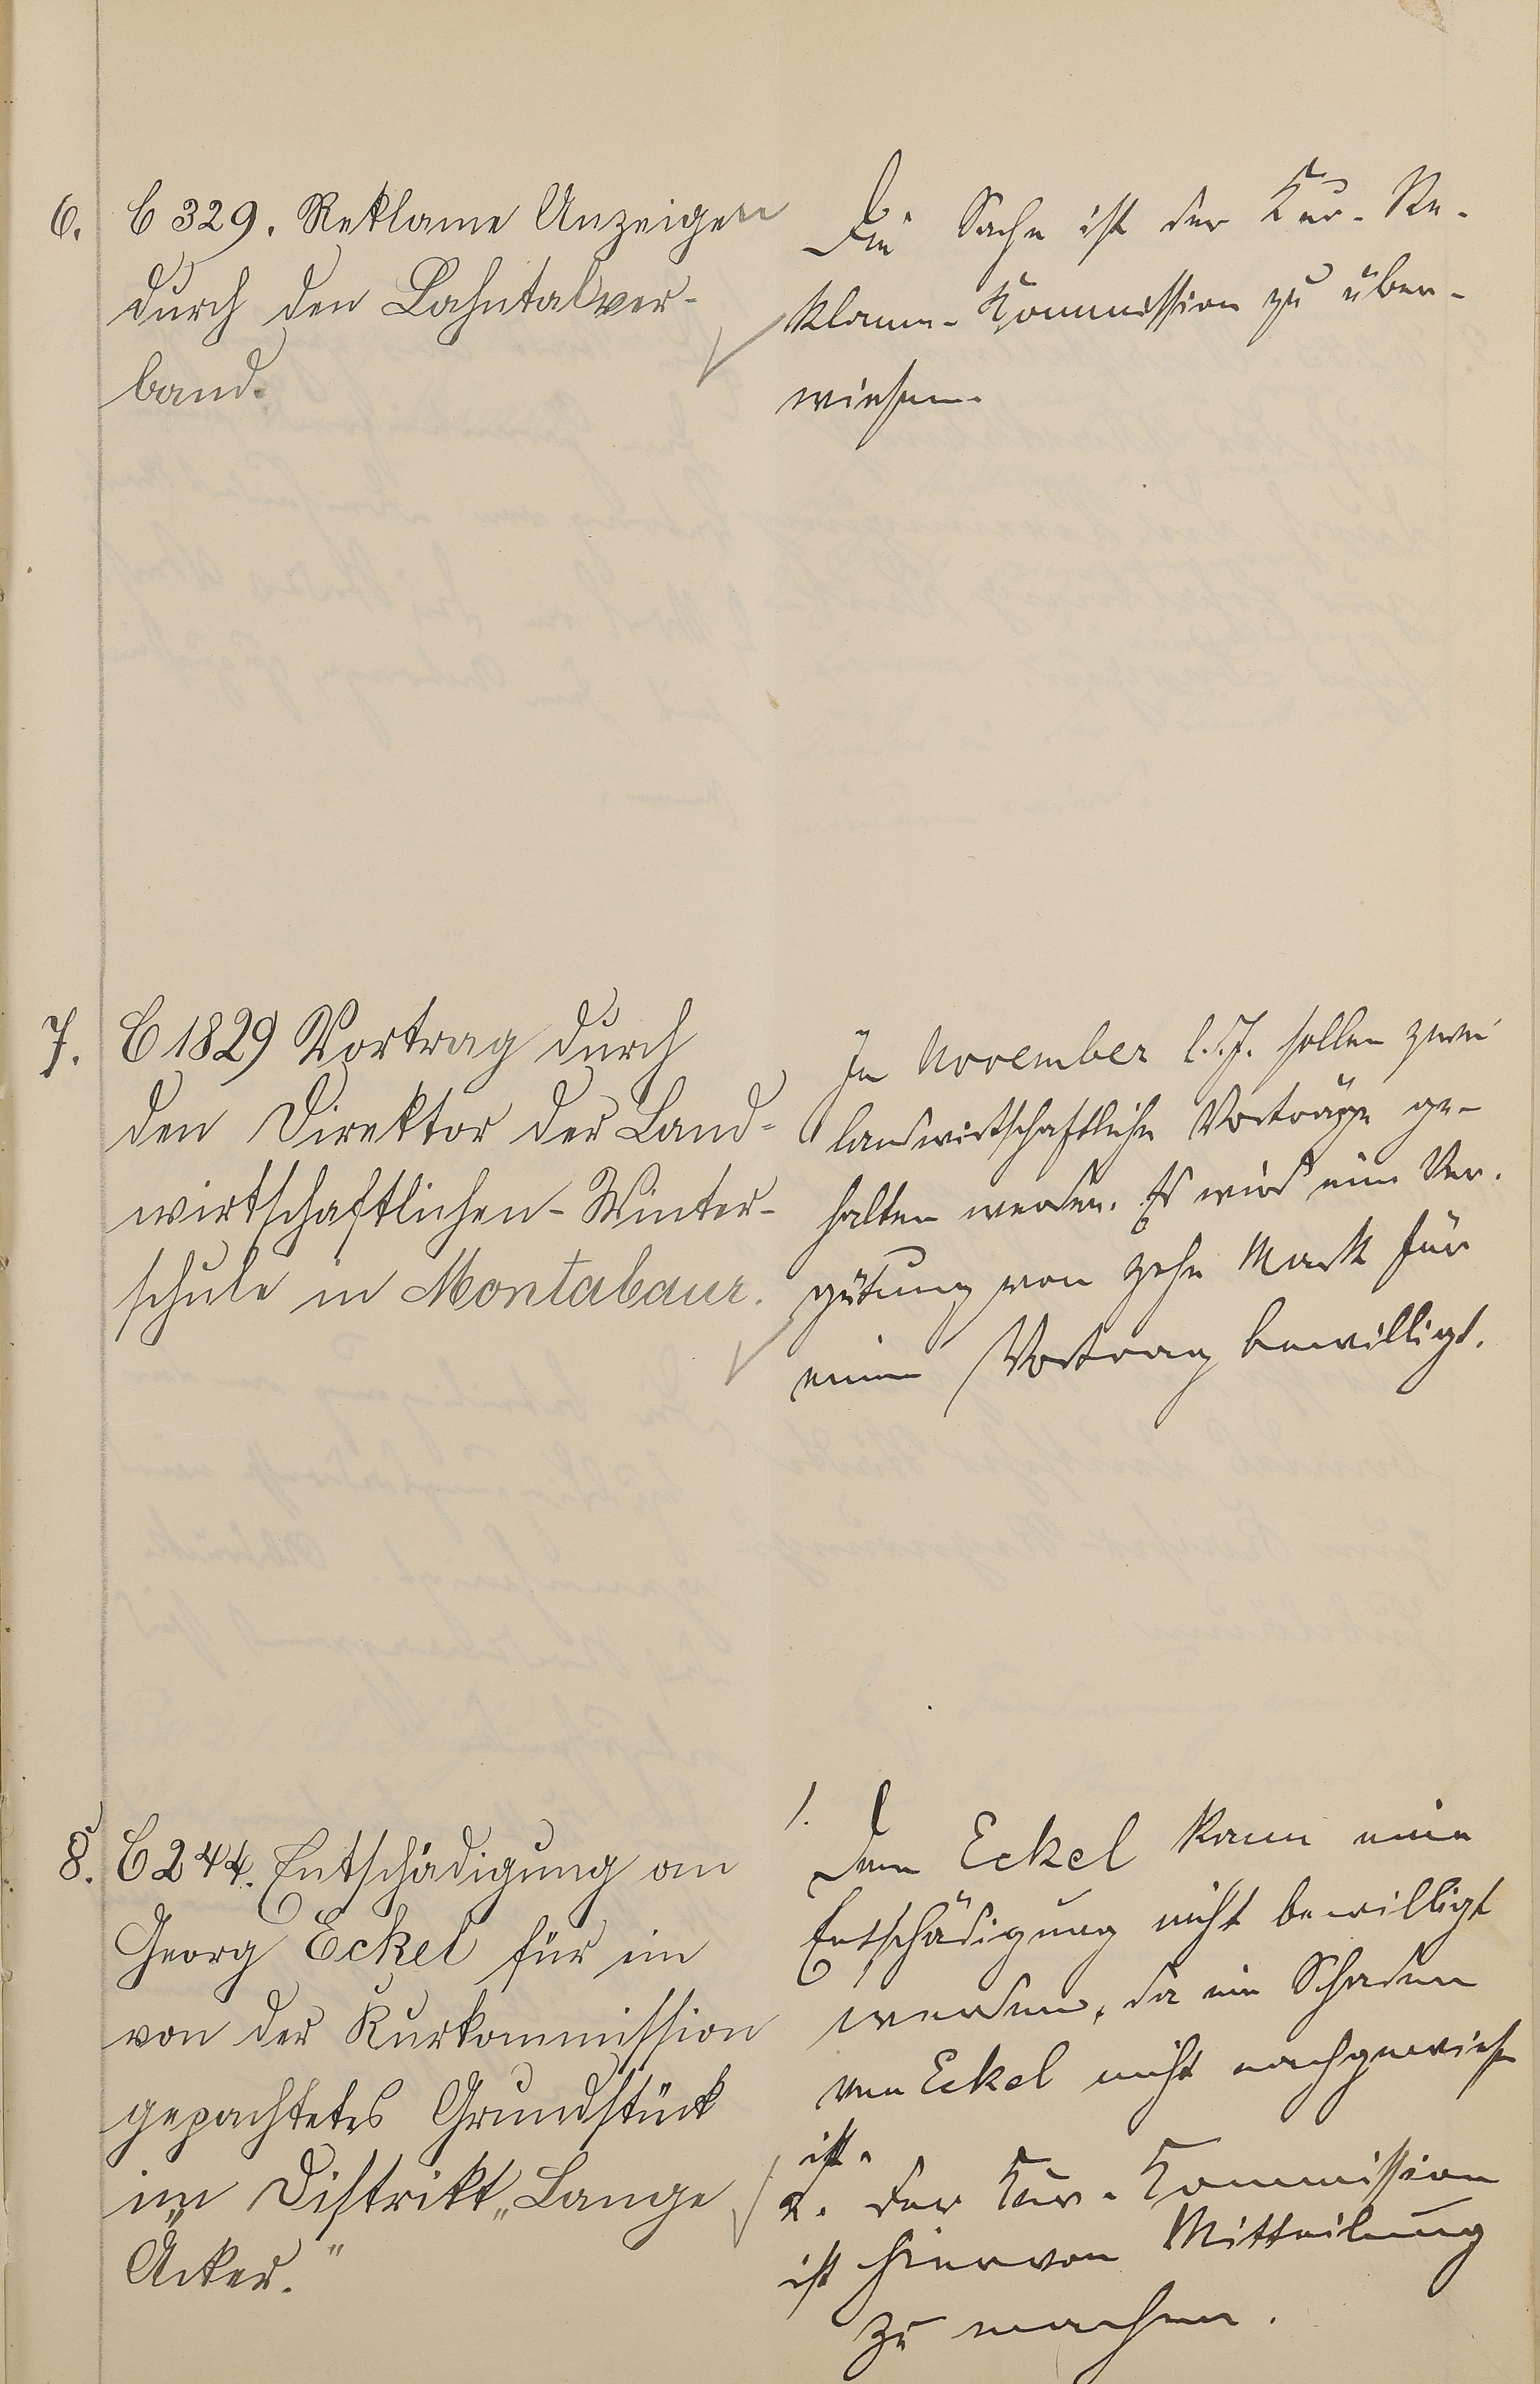 6. C 329. Reklame Anzeigen
durch den Lahntalver-
band.
Die Sache ist der Kur-Re-
klame-Kommission zu über-
wiesen.
7. C 1829 Vortrag durch
den Direktor der Land-
wirtschaftlichen-Winter-
schule in Montabaur.
Im November l. J. sollen zwei
landwirtschaftliche Vorträge ge-
halten werden. Es wird eine Ver-
gütung von zehn Mark für
einen Vortrag bewilligt.
8. C 244. Entschädigung an
Georg Eckel für ein
von der Kurkommission
gepachtetes Grundstück
im Distrikt „Lange
Äcker."
1. Dem Eckel kann eine
Entschädigung nicht bewilligt
werden, da ein Schaden
von Eckel nicht nachgewiesen
ist.
2. Der Kur-Kommission
ist hiervon Mitteilung
zu machen.